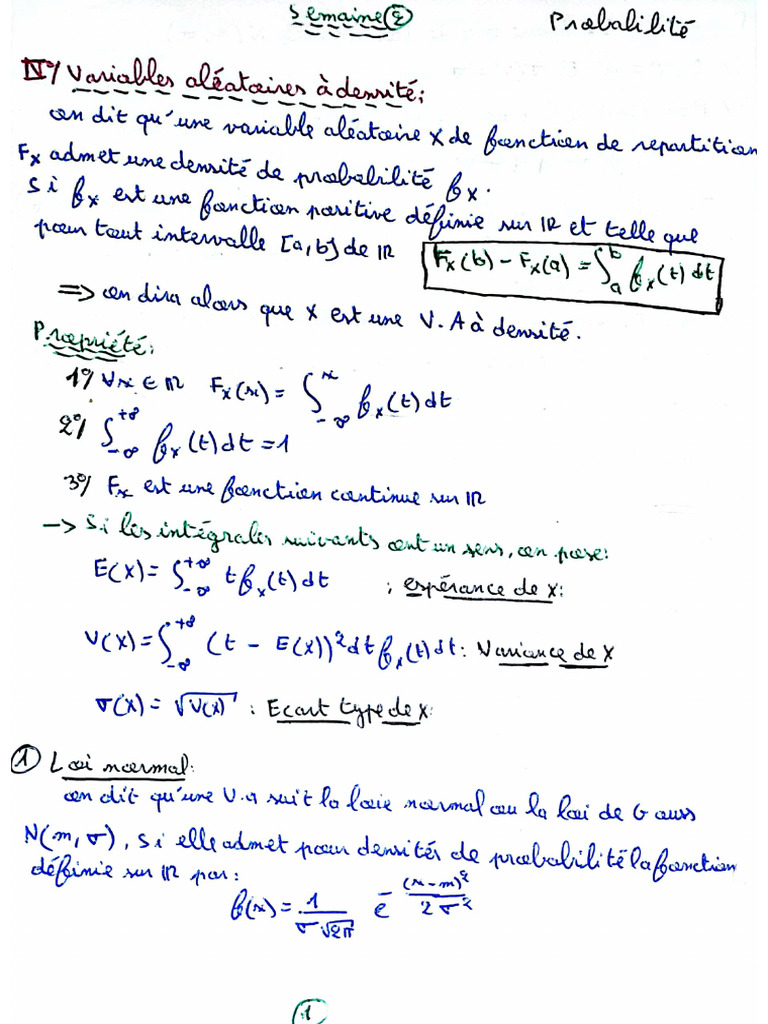 Semaine ②
Probabilité
IV°/ Variables aléatoires à densité:
on dit qu'une variable aléatoire X de fonction de repartition
Fx admet une densité de probabilité fx.
Si fx est une fonction positive définie sur IR et telle que
pour tout intervalle [a,b] de IR Fx(b) - Fx(a) = ∫_a^b fx(t) dt
=> on dira alors que X est une V.A à densité.
Propriété:
1°/ ∀x ∈ IR Fx(x) = ∫_{-∞}^{x} fx(t) dt
2°/ ∫_{-∞}^{+∞} fx(t) dt = 1
3°/ Fx est une fonction continue sur IR
-> Si les intégrales suivants ont un sens, on pose:
E(X) = ∫_{-∞}^{+∞} t fx(t) dt ; espérance de X:
V(X) = ∫_{-∞}^{+∞} (t - E(X))² dt fx(t) dt : Variance de X
σ(X) = √V(X) : Ecart type de X:
① Loi normal:
on dit qu'une V.a suit la loie normal ou la loi de Gauss
N(m, σ), si elle admet pour densités de probabilité la fonction
définie sur IR par:
f(x) = 1/(σ√2π) e^-(x-m)²/2σ²
①